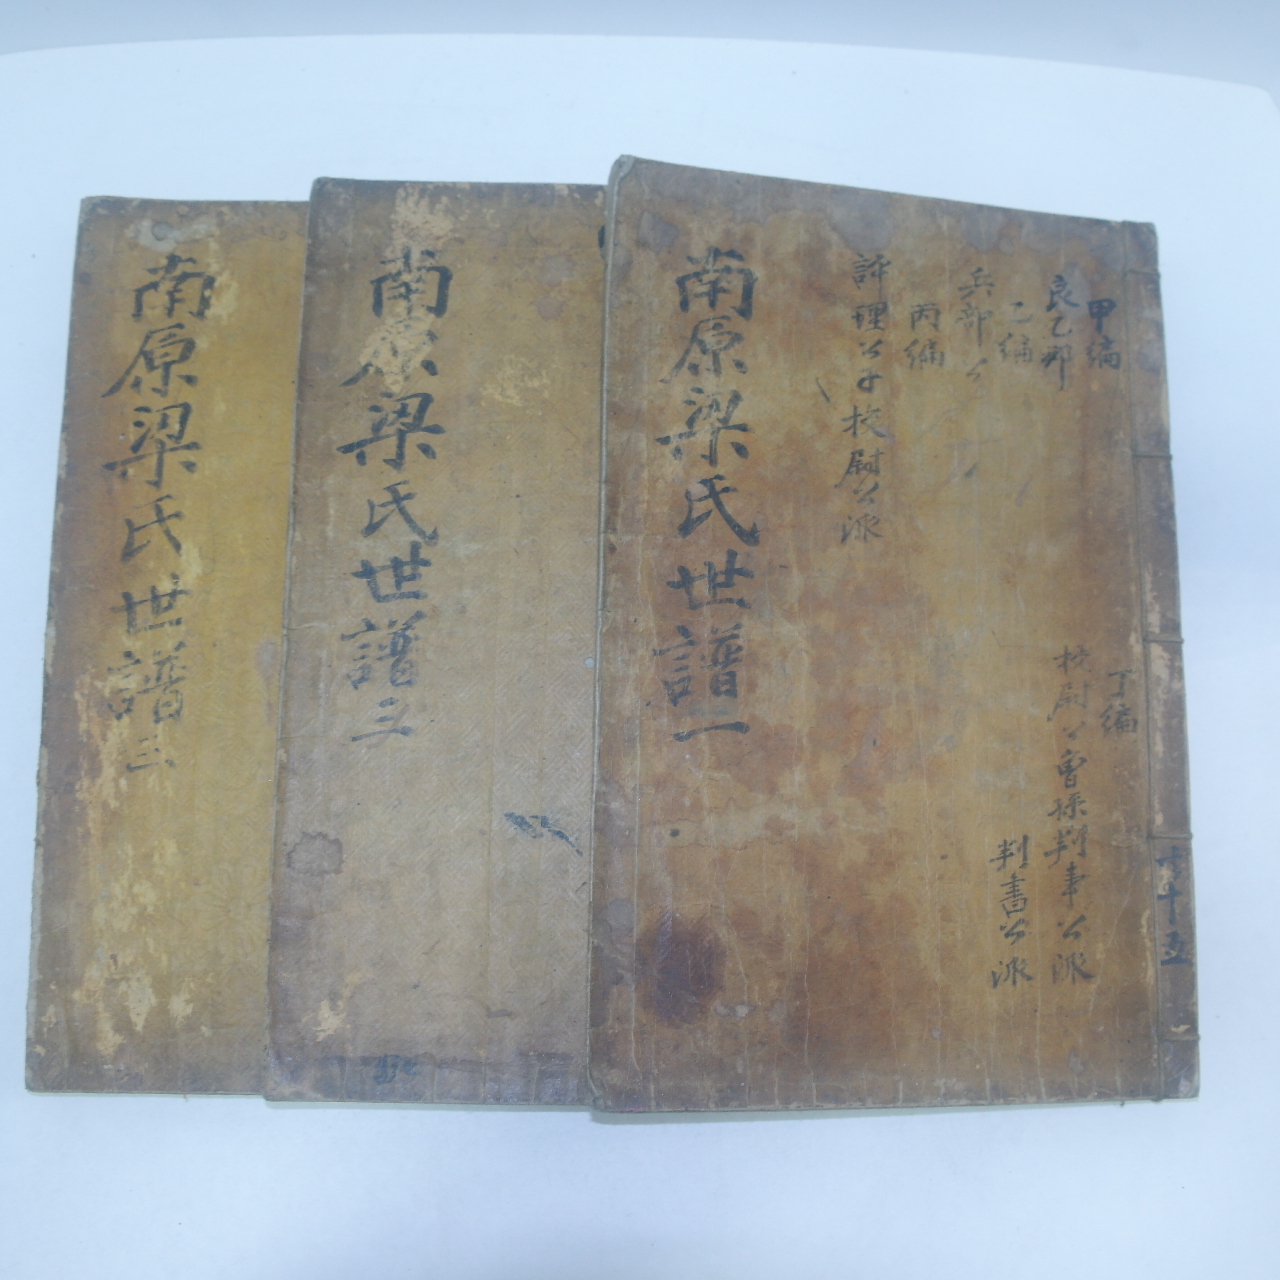 甲編
良乙那
乙編
兵部公
丙編
評理公子校尉公派
丁編
校尉公曾孫判事公派
判書公派
共十五
南原梁氏世譜一
南原梁氏世譜三
南原梁氏世譜三